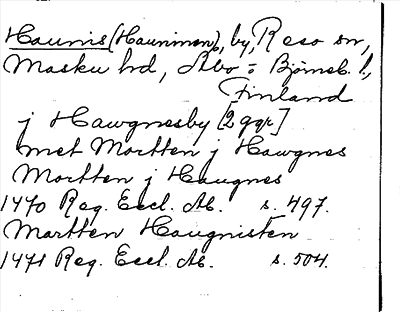 Haunis (Hauninen), by, Reso sn,
Masku hd, Åbo = Björneb. l.,
Finland
j Hawgnesby [2 ggr]
met Mortten j Hawgnes
Mortten j Haugnes
1470 Reg. Eccl. Ab. s. 497.
Martten Haugnisten
1471 Reg. Eccl. Ab. s. 504.